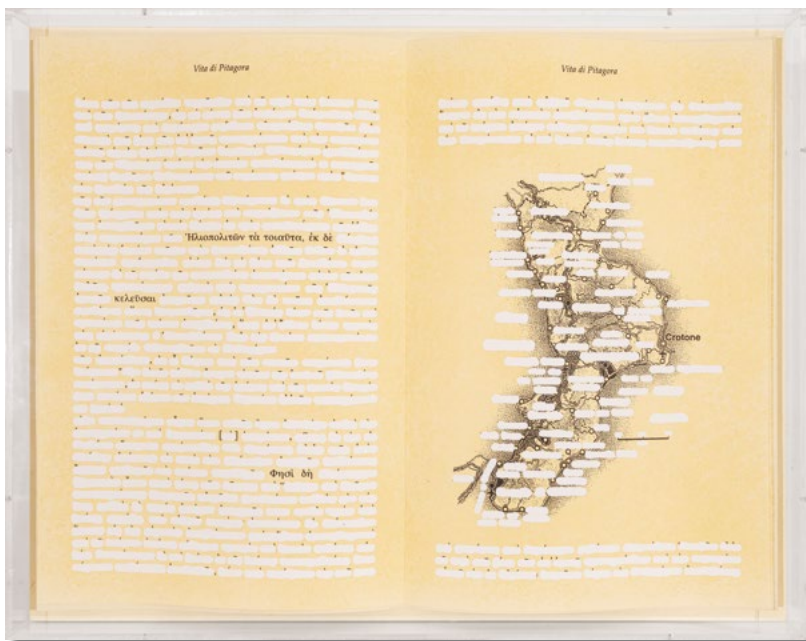 Vita di Pitagora
Ἡλιοπολιτῶν τὰ τοιαῦτα, ἐκ δὲ
κελεῦσαι
[ ` ]
Φησὶ δὴ
Vita di Pitagora
Crotone